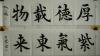 厚德載物
紫氣東来